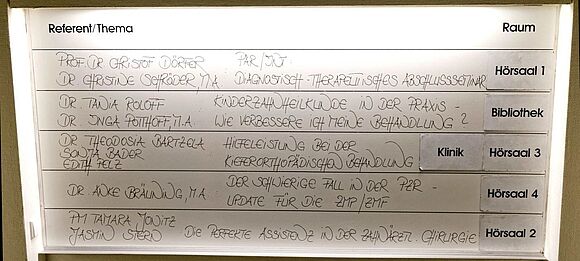 Referent/Thema Raum
PROF. DR. CHRISTOF DÖRFER PAR/INT.
DR. CHRISTINE SCHRÖDER, M.A. DIAGNOSTISCH-THERAPEUTISCHES ABSCHLUSSSEMINAR Hörsaal 1
DR. TANIA ROLOFF KINDERZAHNHEILKUNDE IN DER PRAXIS -
DR. INGA POTTHOFF, M.A. WIE VERBESSERE ICH MEINE BEHANDLUNG? Bibliothek
DR. THEODOSIA BARTZELA HILFELEISTUNG BEI DER
SONJA BADER KIEFERORTHOPÄDISCHEN BEHANDLUNG Klinik Hörsaal 3
EDITH FELZ
DER SCHWIERIGE FALL IN DER PZR -
DR. ANKE BRÄUNING, M.A. UPDATE FÜR DIE ZMP/ZMF Hörsaal 4
PM TAMARA MONITZ
JASMIN STERN DIE PERFEKTE ASSISTENZ IN DER ZAHNÄRZTL. CHIRURGIE Hörsaal 2